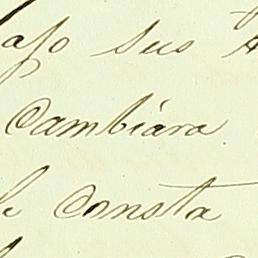 ajo sus
Cambiára
le Consta